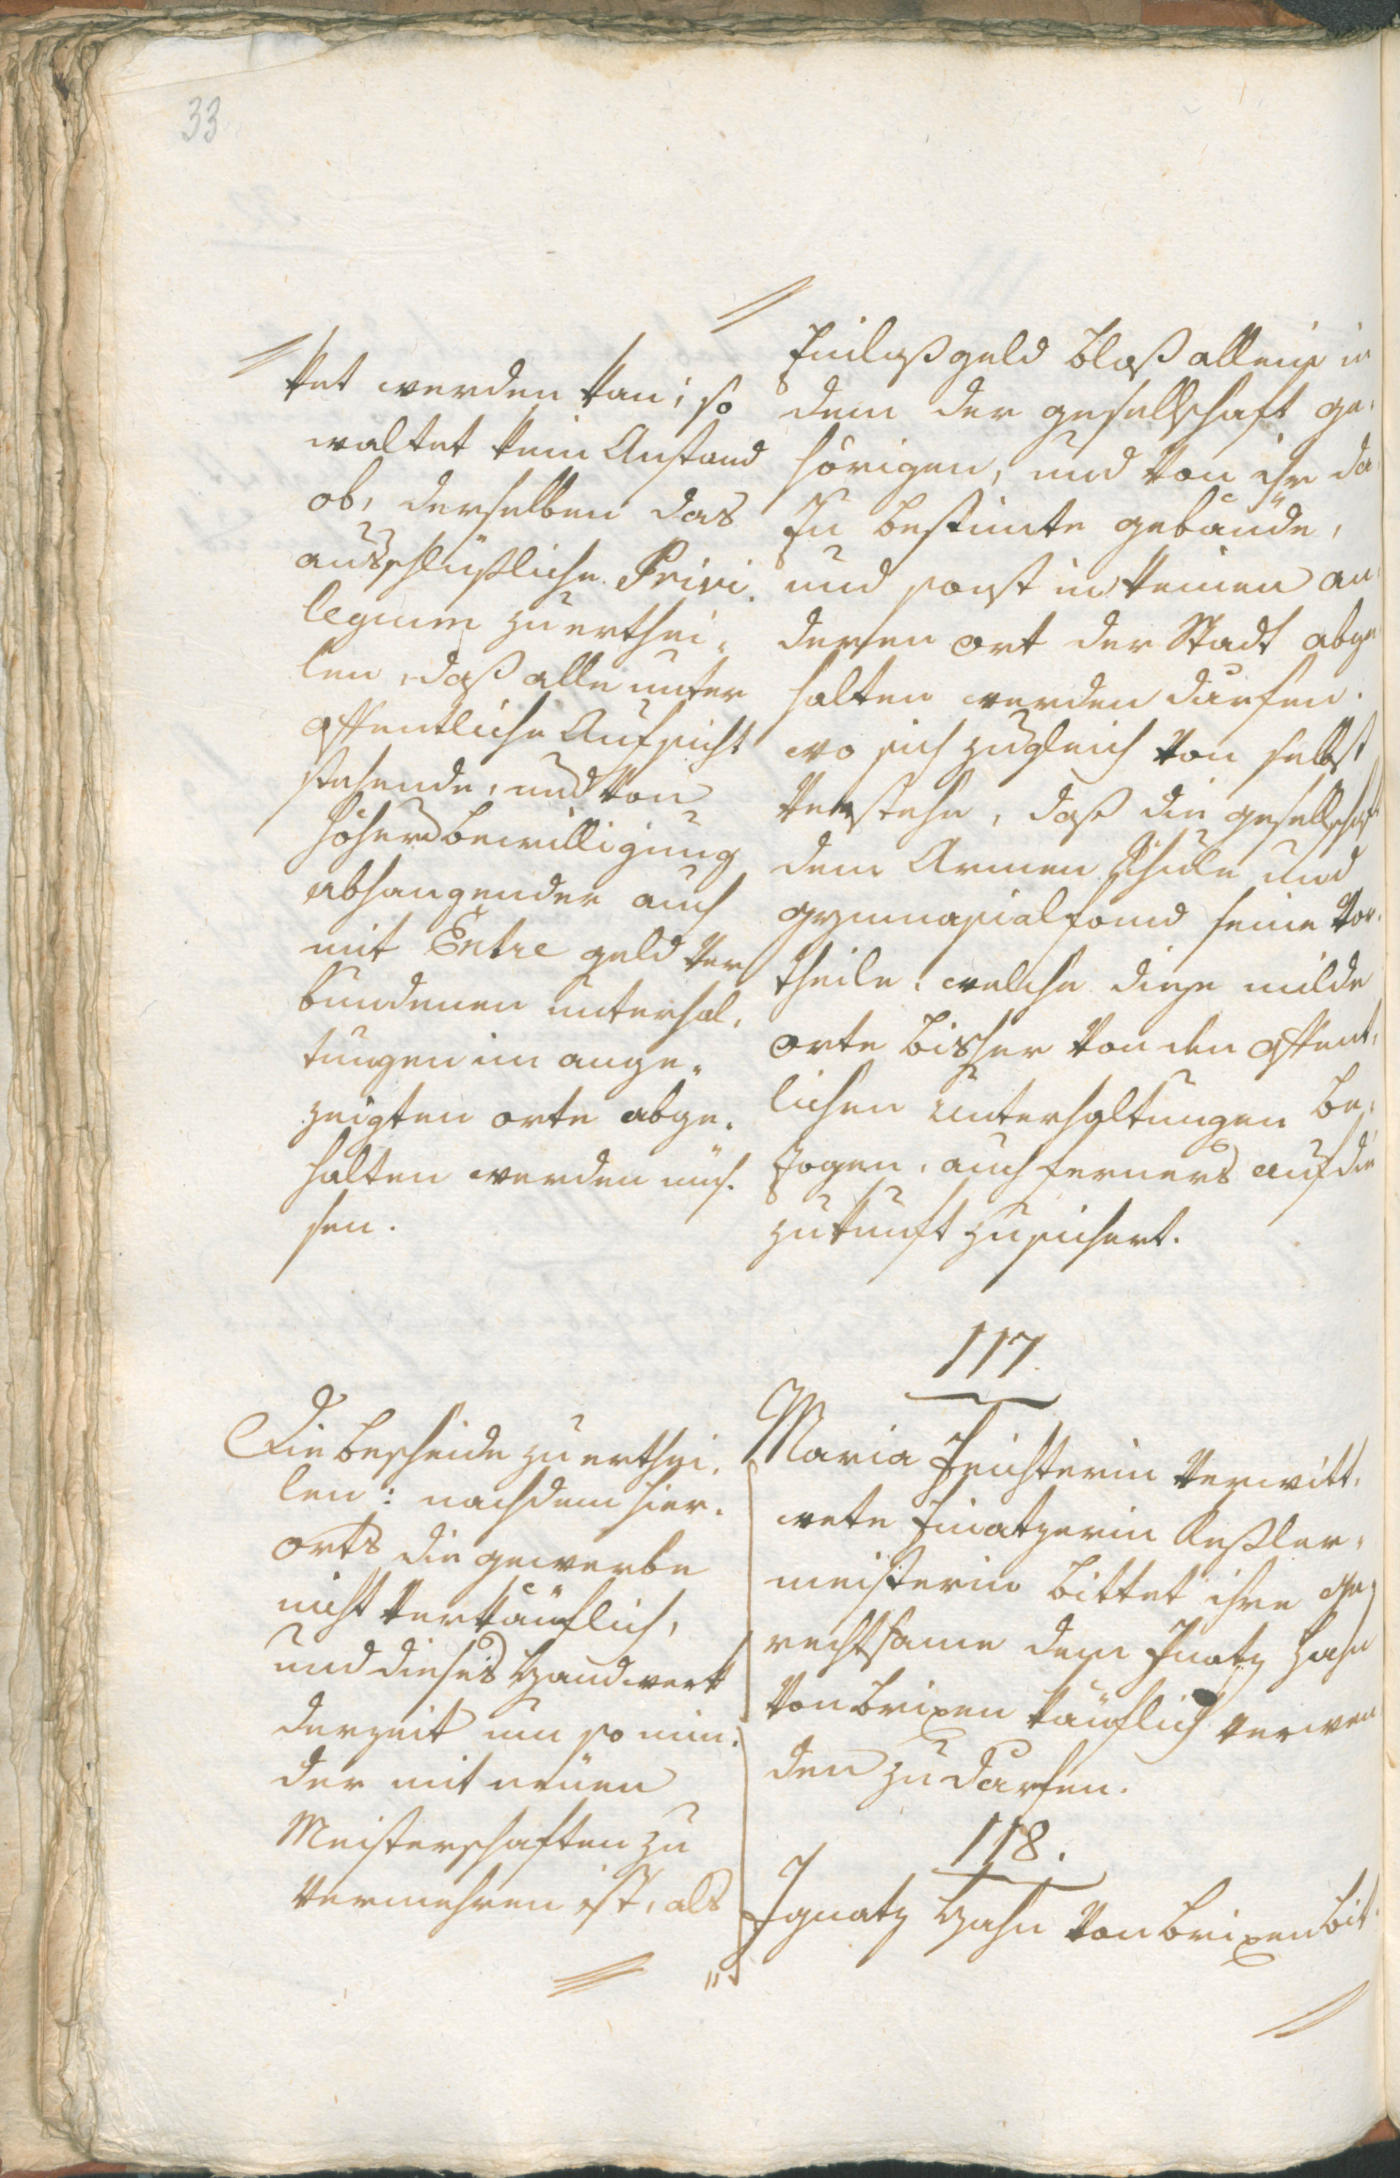 33
ket werden kan; so
waltet kein Anstand
ob, derselben das
ausschlüßliche Privi
legium zu erthei,
len, daß alle unter
offentliche Aufsicht
stehende, und von
höhern bewilligung
abhangender auch
mit Entre geld ver
bundenen unterhal,
tungen im ange,
zeigten orte abge,
halten werden müs,
sen.
Einlaßgeld bloß allein in
dem der gesellschaft ge,
hörigen, und von ihr da
zu bestimte gebäude,
und sonst in keinen an,
deren ort der Stadt abge
halten werden darfen.
wo sich zugleich von selbst
verstehe, daß die gesellschaft
dem Armen Schule und
gymnasialfond seine vor,
theile: welche diese milde
orte bisher von den offent,
lichen unterhaltungen be,
zogen, auch ferners auf die
zukunft zusichert.
Die bescheide zu erthei,
len: nachdem hier,
orts die gewerbe
nicht verkäuflich,
und dieses Handwerk
derzeit um so min,
der mit neuen
Meisterschaften zu
vermehren ist, als
117.
Maria Feichterin verwitt,
wete Keßler,
meisterin bittet ihre ge,
rechtsame dem Jnatz Hahn
von brixen käuflich verwen
den zu darfen.
118.
Ignatz Hahn von brixen bit,